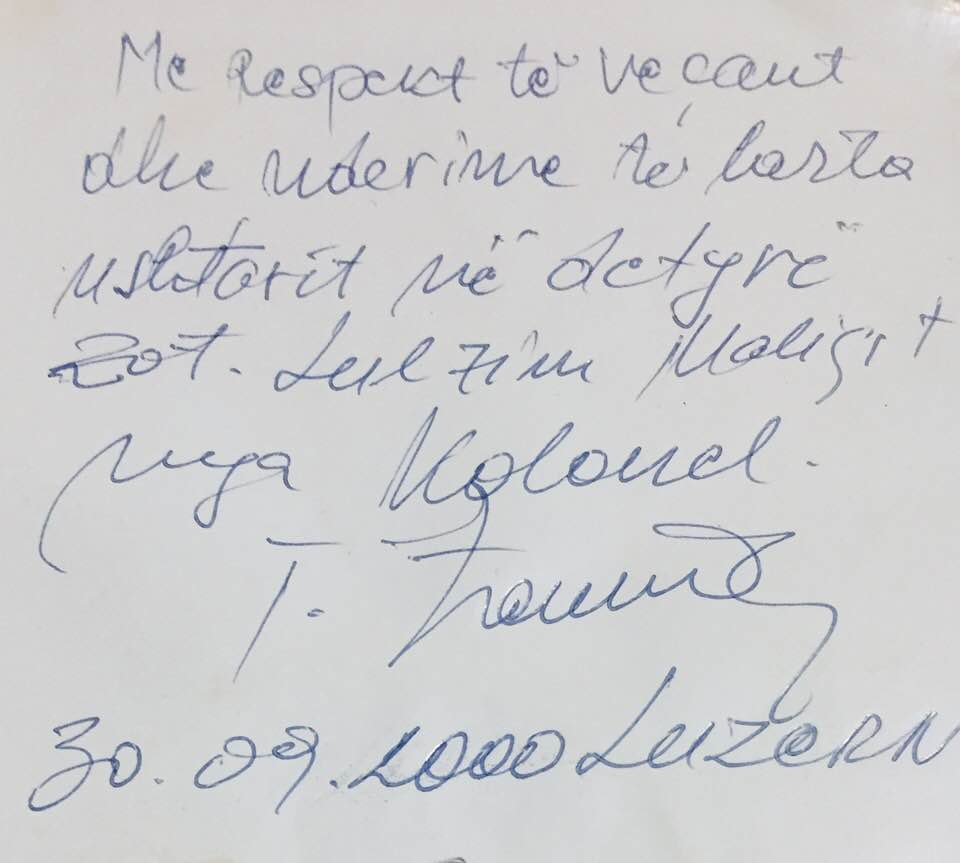 Me Respekt të veçant
dhe nderime të larta
ushtarit në detyrë
Zot. Lulzim Maliqit
nga Kolonel.
T.
30.09.2000 LUZERN